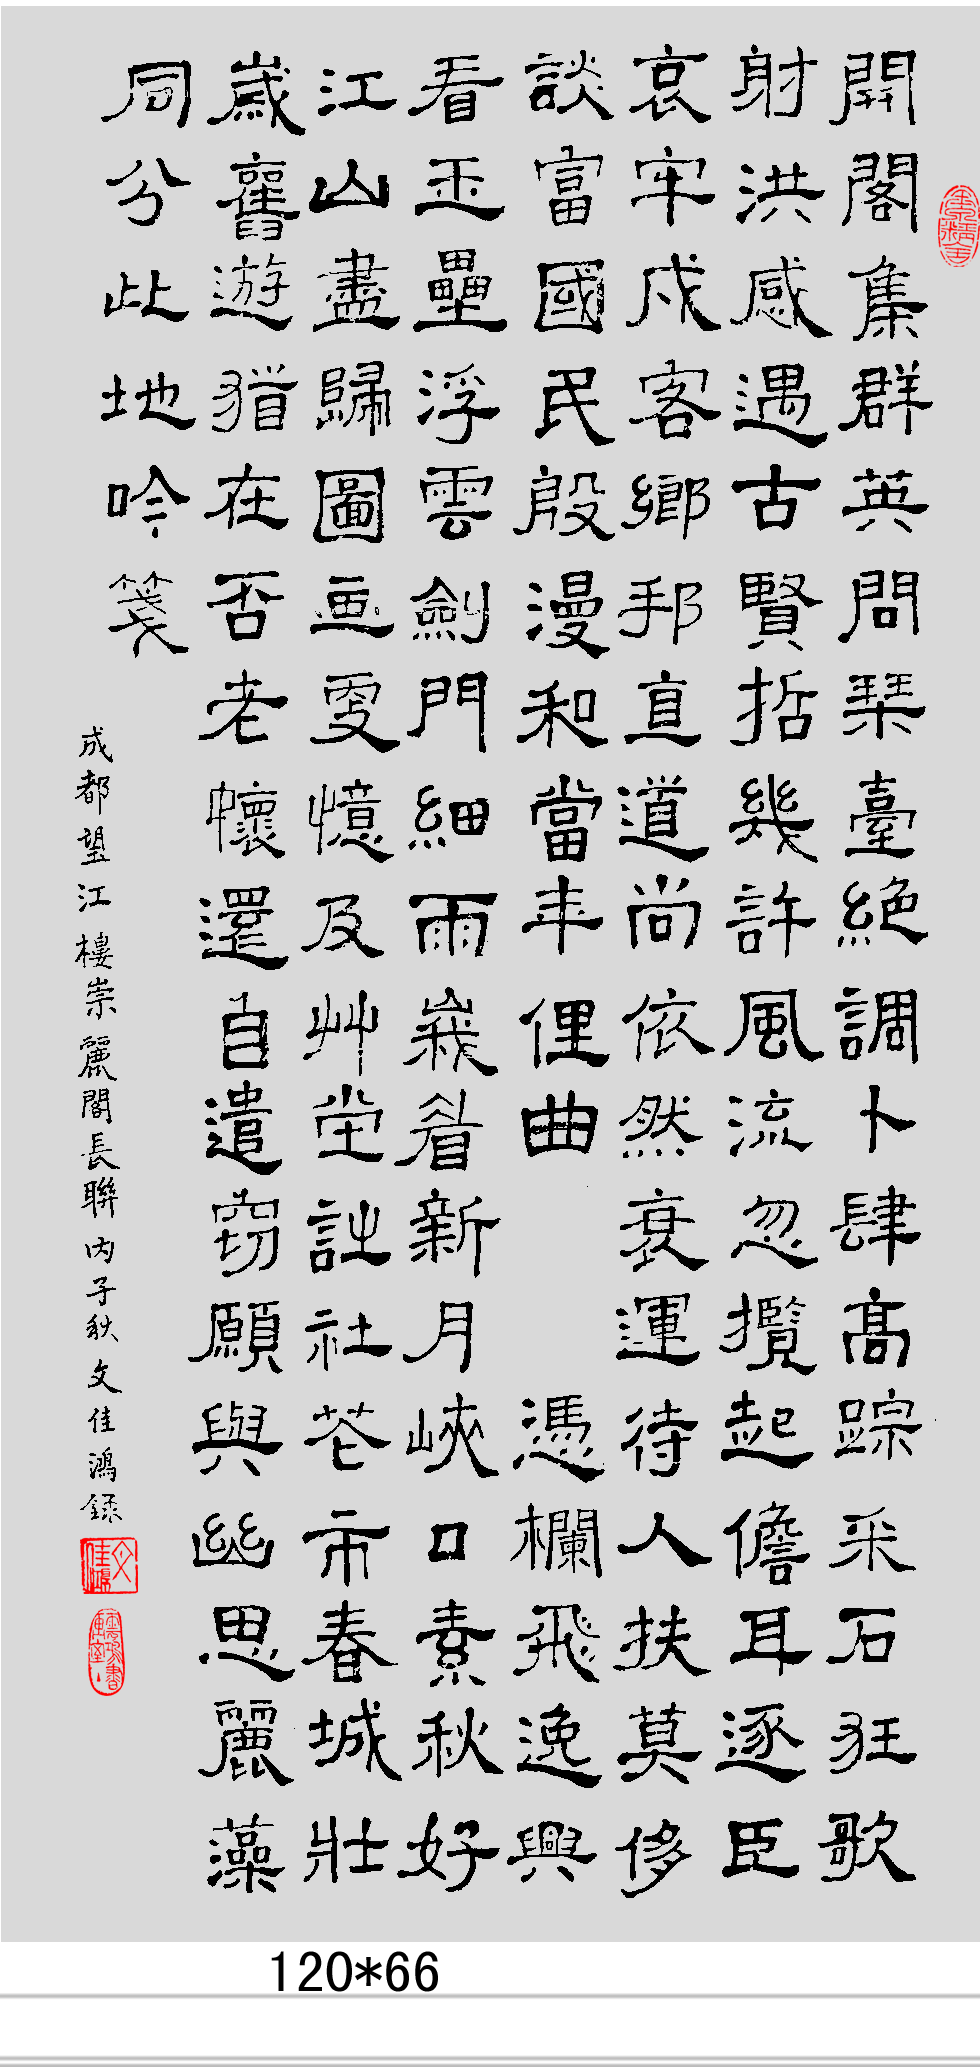 開閣集群英問琹臺絕調卜肆高踪采石狂歌
射洪感遇古賢哲幾許風流忽攬起儋耳逐臣
哀牢戍客鄉邦直道尚依然衰運待人扶莫侈
談富國民殷漫和當年俚曲 憑欄飛逸興
看玉壘浮雲劍門細雨峩眉新月峽口素秋好
江山盡歸圖画更憶及艸堂詩社花市春城壯
歲舊遊猶在否老懷還自遣窃願與幽思麗藻
同分此地吟箋
成都望江樓崇麗閣長聯丙子秋文佳鴻録
文佳鴻
120*66